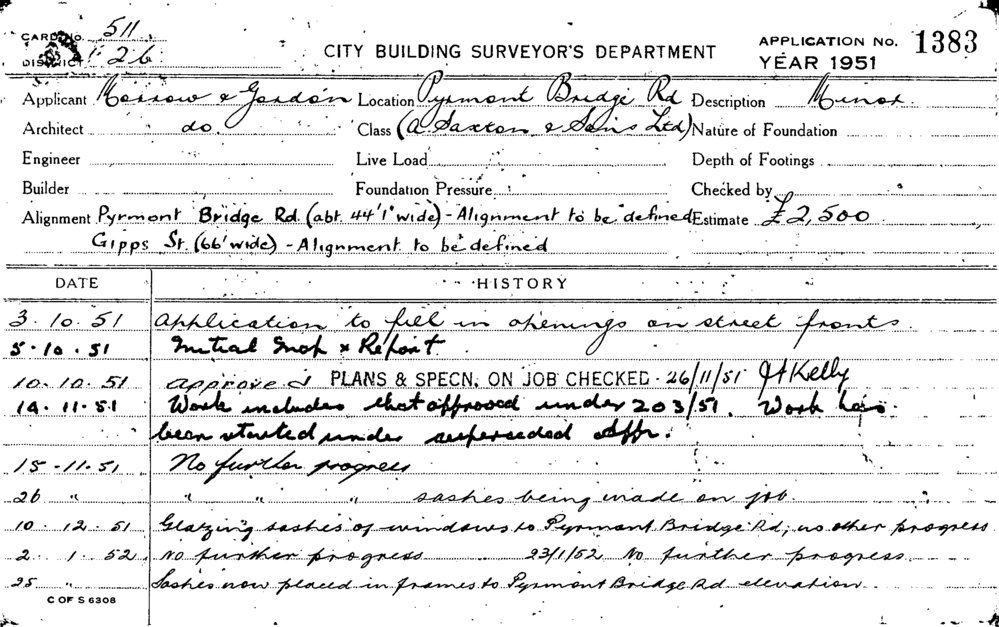 CARD No. 511
DISTRICT 26
CITY BUILDING SURVEYOR'S DEPARTMENT
APPLICATION No. 1383
YEAR 1951
Applicant Morrow & Gordon Location Pyrmont Bridge Rd Description Minor.
Architect do. Class (A. Saxton & Sons Ltd) Nature of Foundation
Engineer Live Load Depth of Footings
Builder Foundation Pressure Checked by
Alignment Pyrmont Bridge Rd. (abt. 44'1" wide) - Alignment to be defined Estimate £2,500
Gipps St. (66' wide) - Alignment to be defined
DATE HISTORY
3.10.51 Application to fill in openings on street fronts.
5.10.51 Initial Insp & Report.
10.10.51 Approved PLANS & SPECN. ON JOB CHECKED. 26/11/51 Kelly
14.11.51 Work includes that approved under 203/51. Work has
been started under superseded appn.
15.11.51 No further progress
26 " " " " sashes being made on job.
10.12.51 Glazing sashes of windows to Pyrmont Bridge Rd, no other progress
2.1.52 No further progress 23/1/52 No further progress.
25 " Sashes now placed in frames to Pyrmont Bridge Rd elevation.
C OF S 6308